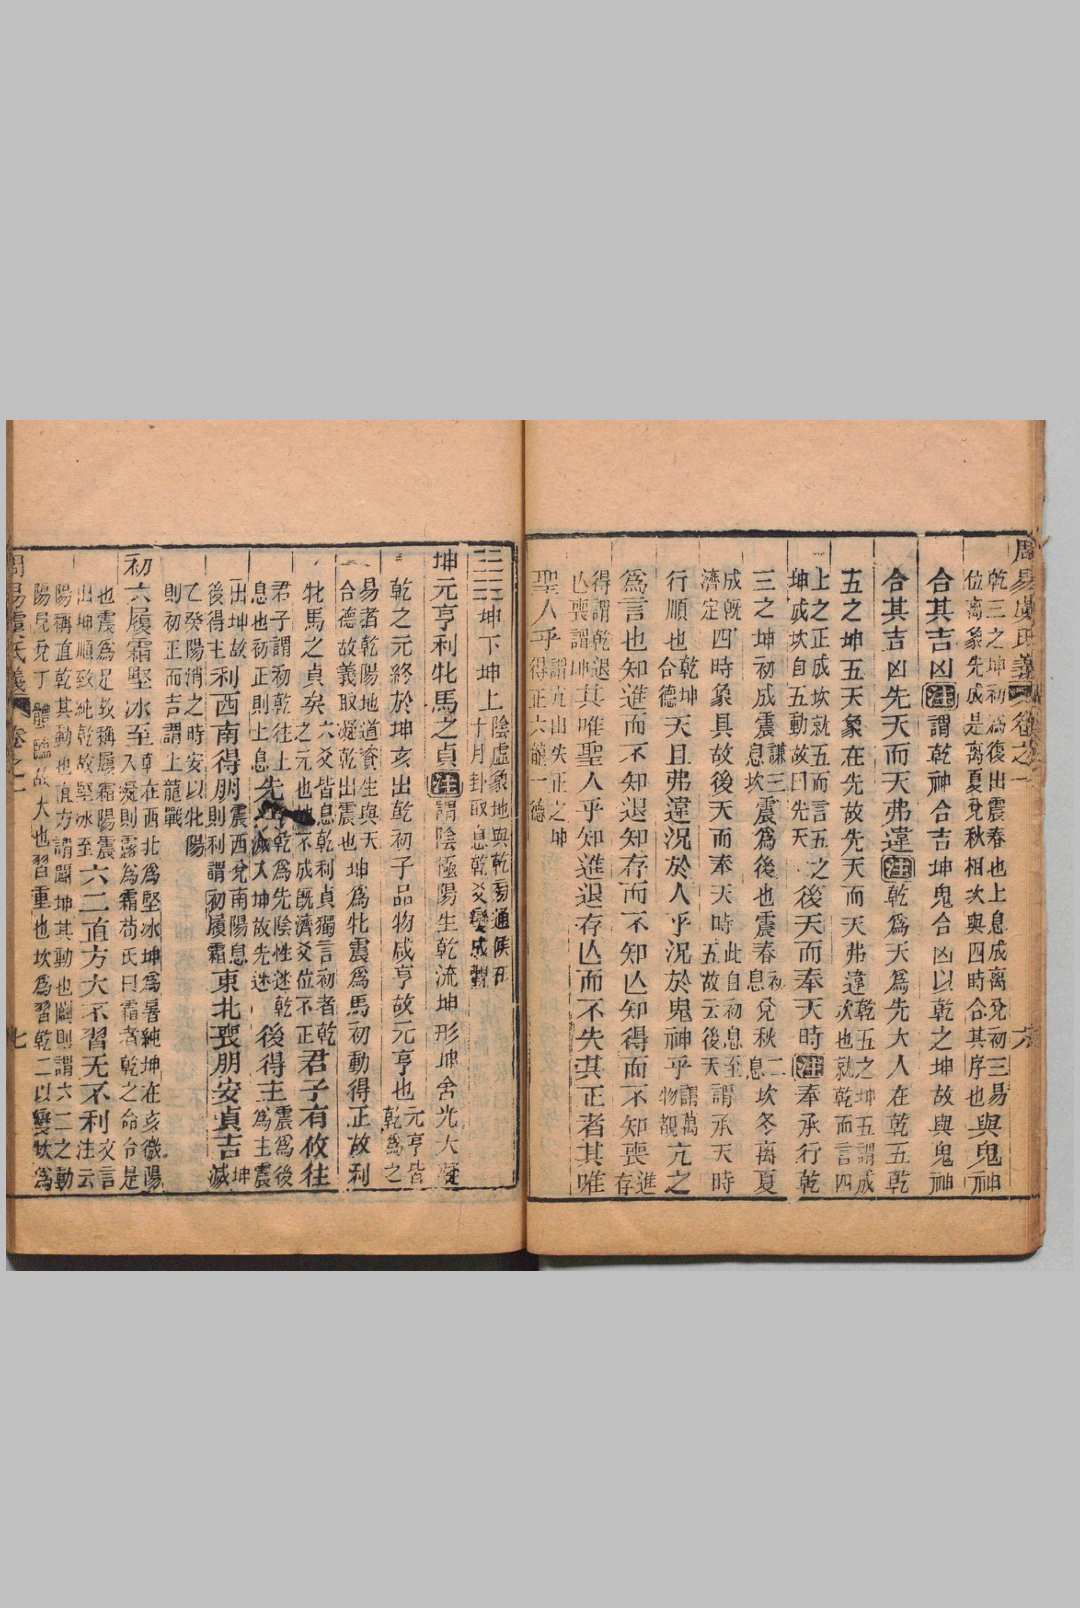 周易虞氏義 卷之一 六
乾三之坤初為復出震春也上息成離兌初三易與鬼神
位離象先成是離夏兌秋相次與四時合其序也
合其吉凶注謂乾神合吉坤鬼合凶以乾之坤故與鬼神
合其吉凶先天而天弗違注乾為天為先大人在乾五乾
五之坤五天象在先故先天而天弗違乾五之坤五謂成
次也就乾而言四
上之正成坎就五而言五之
坤成坎自五動故曰先天
後天而奉天時注奉承行乾
三之坤初成震息坎謙三震為後也震春初息兌秋二息坎冬離夏
成既濟定四時象具故後天而奉天時此自初息至五故云後天謂承天時
行順也乾坤合德天且弗違況於人乎況於鬼神乎謂萬物覩亢之
為言也知進而不知退知存而不知亡知得而不知喪進存
得謂乾退亡喪謂坤其唯聖人乎知進退存亡而不失其正者其唯
聖人乎謂五出失正之坤得正六龍一德
坤下坤上陰虛象地與乾旁通候在
十月卦取息乾爻變成觀
坤元亨利牝馬之貞注謂陰極陽生乾流坤形坤含光大凝
乾之元終於坤亥出乾初子品物咸亨故元亨也元亨皆乾為之
易者乾陽地道資生與天
合德故義取凝乾出震也
坤為牝震為馬初動得正故利
牝馬之貞矣六爻皆息乾利貞獨言初者乾
之元也坤不成既濟爻位不正
君子有攸往
君子謂初乾往上
息也初正則上息
先迷乾為先陰性迷乾
滅入坤故先迷
後得主震為後為主震
出坤故後得主利西南得朋震西兌南陽息則利謂初履霜東北喪朋安貞吉坤滅
乙癸陽消之時安以牝陽
則初正而吉謂上龍戰
初六履霜堅冰至乾在西北為堅冰坤為暑純坤在亥微陽
入凝則露為霜荀氏曰霜者乾之命令是
也震為足故稱履霜陽震
出坤順致純乾故堅冰至
六二直方大不習无不利注云爻言
陽稱直乾其動也直方謂闢坤其動也闢則謂六二之動
陽見兌丁體臨故大也習重也坎為習乾二以變坎為
周易虞氏義 卷之一 七